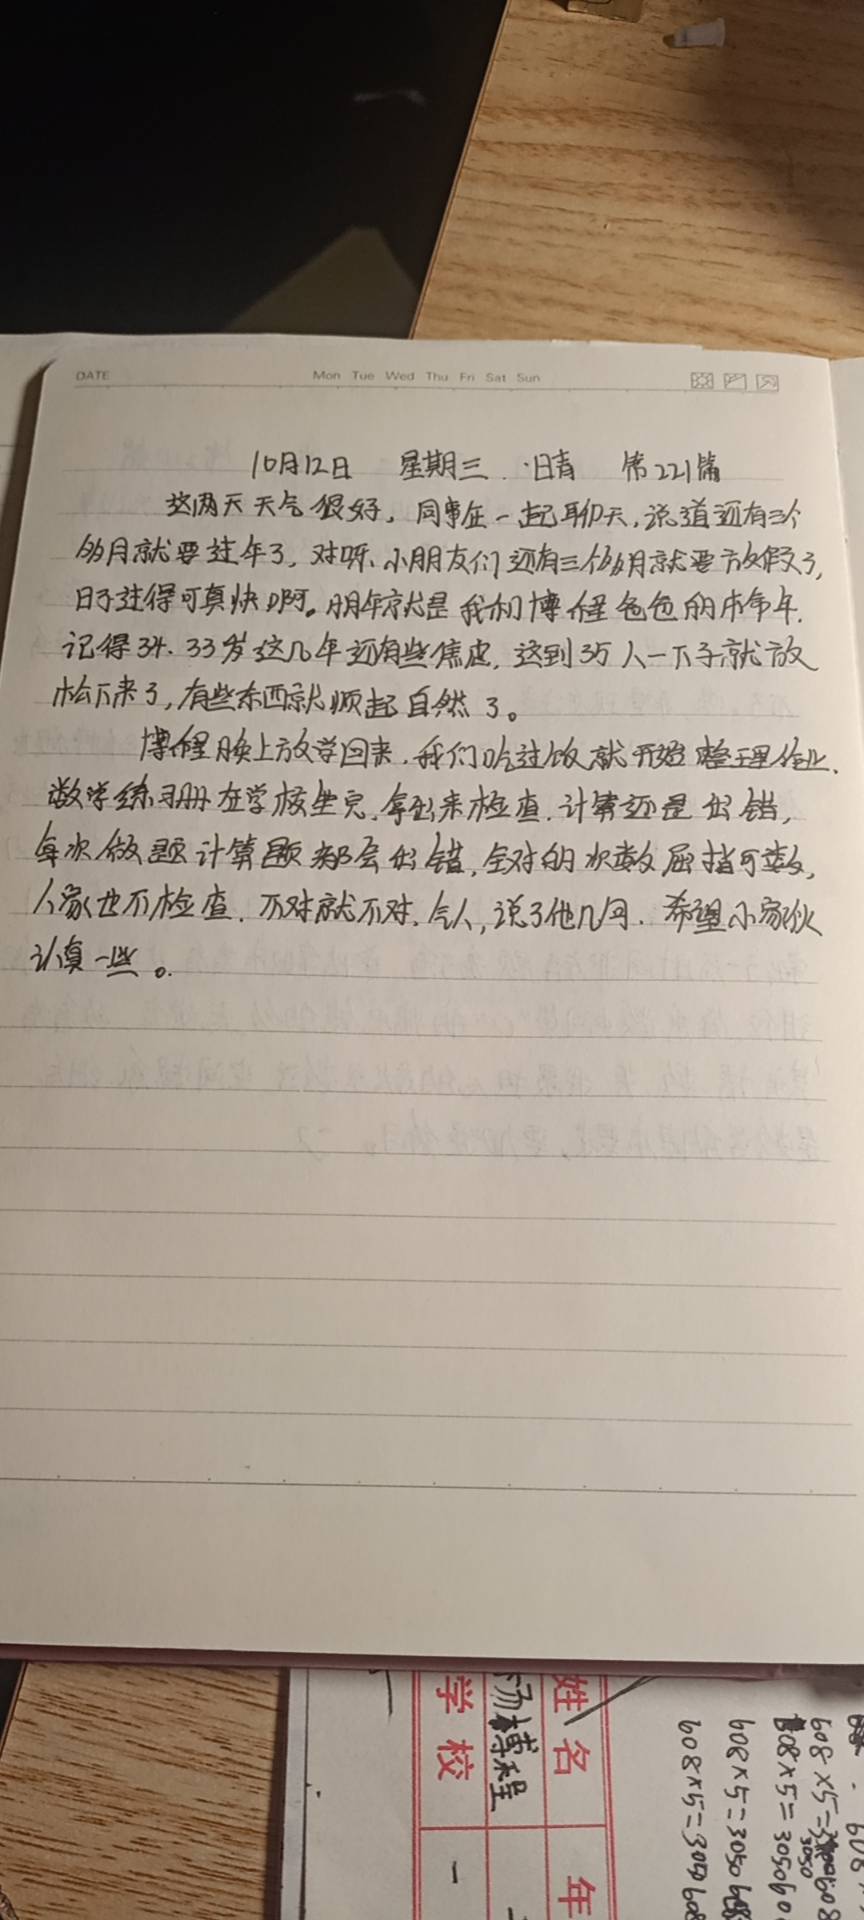 DATE Mon Tue Wed Thu Fri Sat Sun
10月12日 星期三 晴 第221篇
这两天天气很好，同事在一起聊天，说道还有三个
多月就要过年了，对呀、小朋友们还有三个多月就要放假了，
日子过得可真快啊。明年就是我和博程爸爸的本命年.
记得34.33岁这几年还有些焦虑，这到35人一下子就放
松下来了，有些东西就顺起自然了。
博程晚上放学回来，我们吃过饭就开始整理作业.
数学练习册在学校坐完，拿出来检查，计算还是出错，
每次做题计算题都会出错，全对的次数屈指可数，
人家也不检查，不对就不对，令人，说了他几句. 希望小家伙
认真一些。
姓名
杨博程
学校
年
一
608×5=3050
608×5=3050
608×5=3050